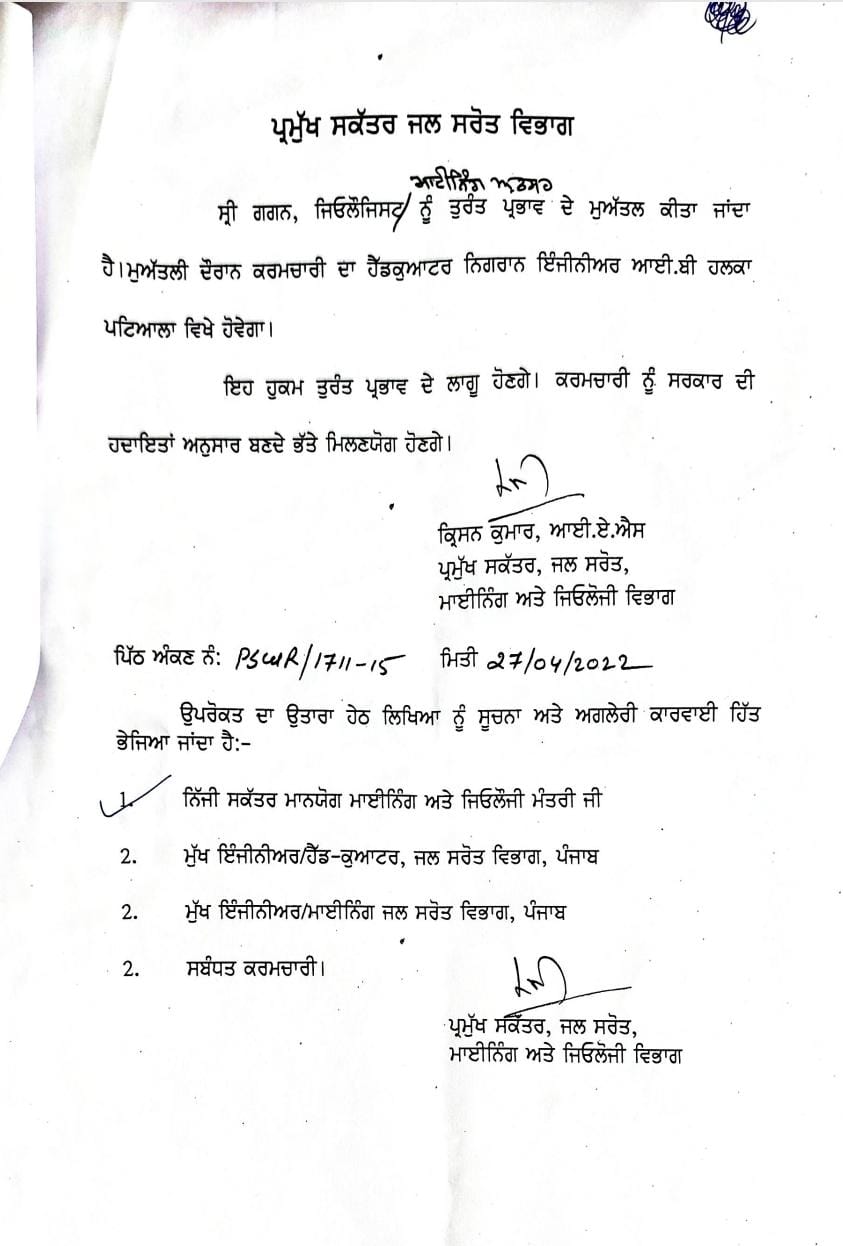 ਪ੍ਰਮੁੱਖ ਸਕੱਤਰ ਜਲ ਸਰੋਤ ਵਿਭਾਗ
ਮਾਈਨਿੰਗ ਅਫਸਰ
ਸ੍ਰੀ ਗਗਨ, ਜਿਓਲੌਜਿਸਟ/ ਨੂੰ ਤੁਰੰਤ ਪ੍ਰਭਾਵ ਦੇ ਮੁਅੱਤਲ ਕੀਤਾ ਜਾਂਦਾ
ਹੈ।ਮੁਅੱਤਲੀ ਦੌਰਾਨ ਕਰਮਚਾਰੀ ਦਾ ਹੈੱਡਕੁਆਟਰ ਨਿਗਰਾਨ ਇੰਜੀਨੀਅਰ ਆਈ.ਬੀ ਹਲਕਾ
ਪਟਿਆਲਾ ਵਿਖੇ ਹੋਵੇਗਾ।
ਇਹ ਹੁਕਮ ਤੁਰੰਤ ਪ੍ਰਭਾਵ ਦੇ ਲਾਗੂ ਹੋਣਗੇ। ਕਰਮਚਾਰੀ ਨੂੰ ਸਰਕਾਰ ਦੀ
ਹਦਾਇਤਾਂ ਅਨੁਸਾਰ ਬਣਦੇ ਭੱਤੇ ਮਿਲਣਯੋਗ ਹੋਣਗੇ।
ਕ੍ਰਿਸਨ ਕੁਮਾਰ, ਆਈ.ਏ.ਐਸ
ਪ੍ਰਮੁੱਖ ਸਕੱਤਰ, ਜਲ ਸਰੋਤ,
ਮਾਈਨਿੰਗ ਅਤੇ ਜਿਓਲੋਜੀ ਵਿਭਾਗ
ਪਿੱਠ ਅੰਕਣ ਨੰ: PSWR/1711-15 ਮਿਤੀ 27/04/2022
ਉਪਰੋਕਤ ਦਾ ਉਤਾਰਾ ਹੇਠ ਲਿਖਿਆ ਨੂੰ ਸੂਚਨਾ ਅਤੇ ਅਗਲੇਰੀ ਕਾਰਵਾਈ ਹਿੱਤ
ਭੇਜਿਆ ਜਾਂਦਾ ਹੈ:-
1. ਨਿੱਜੀ ਸਕੱਤਰ ਮਾਨਯੋਗ ਮਾਈਨਿੰਗ ਅਤੇ ਜਿਓਲੌਜੀ ਮੰਤਰੀ ਜੀ
2. ਮੁੱਖ ਇੰਜੀਨੀਅਰ/ਹੈੱਡ-ਕੁਆਟਰ, ਜਲ ਸਰੋਤ ਵਿਭਾਗ, ਪੰਜਾਬ
2. ਮੁੱਖ ਇੰਜੀਨੀਅਰ/ਮਾਈਨਿੰਗ ਜਲ ਸਰੋਤ ਵਿਭਾਗ, ਪੰਜਾਬ
2. ਸਬੰਧਤ ਕਰਮਚਾਰੀ।
ਪ੍ਰਮੁੱਖ ਸਕੱਤਰ, ਜਲ ਸਰੋਤ,
ਮਾਈਨਿੰਗ ਅਤੇ ਜਿਓਲੋਜੀ ਵਿਭਾਗ